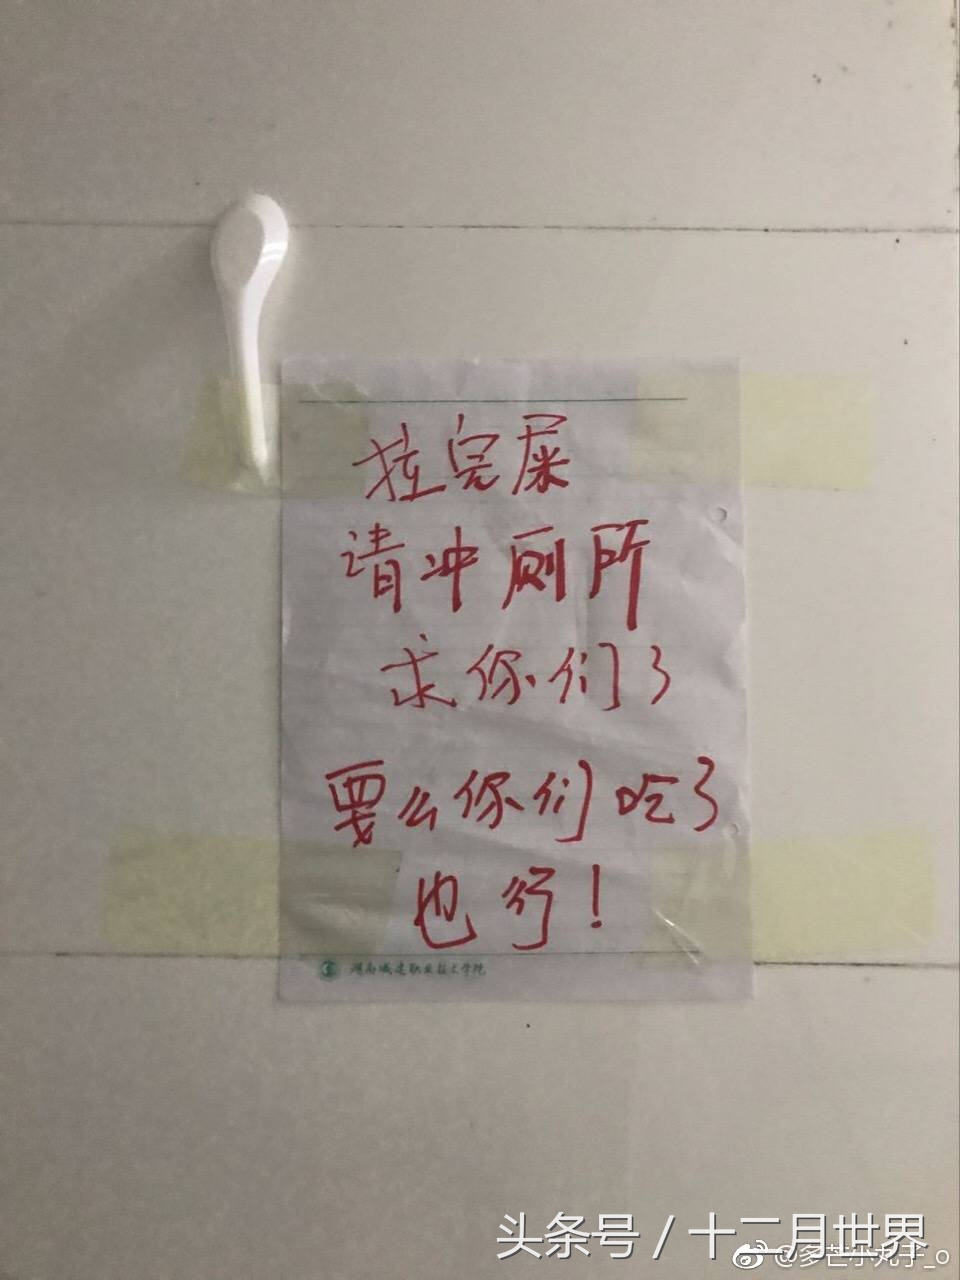 拉完屎
请冲厕所
求你们了
要么你们吃了
也行!
湖南城建职业技术学院
头条号 / 十二月世界
@多芒小丸子_o